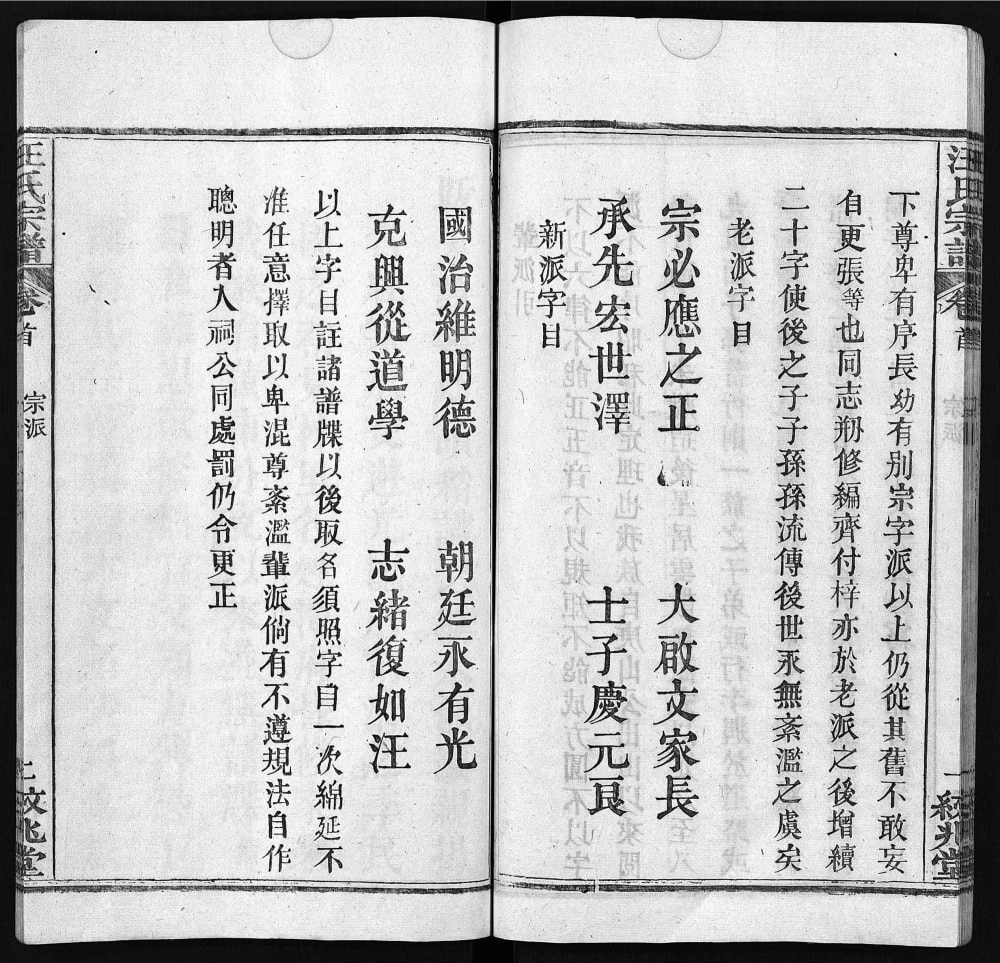 汪氏宗譜
卷首
宗派
一
經兆堂
下尊卑有序長幼有别宗字派以上仍從其舊不敢妄
自更張等也同志剙修編齊付梓亦於老派之後增續
二十字使後之子子孫孫流傳後世永無紊濫之虞矣
老派字目
宗必應之正　大啟文家長
承先宏世澤　士子慶元良
新派字目
國治維明德　朝廷永有光
克興從道學　志緒復如汪
以上字目註諸譜牒以後取名須照字目一次綿延不
准任意擇取以卑混尊紊濫輩派倘有不遵規法自作
聰明者入祠公同處罰仍令更正
汪氏宗譜
卷首
宗派
二
兆堂